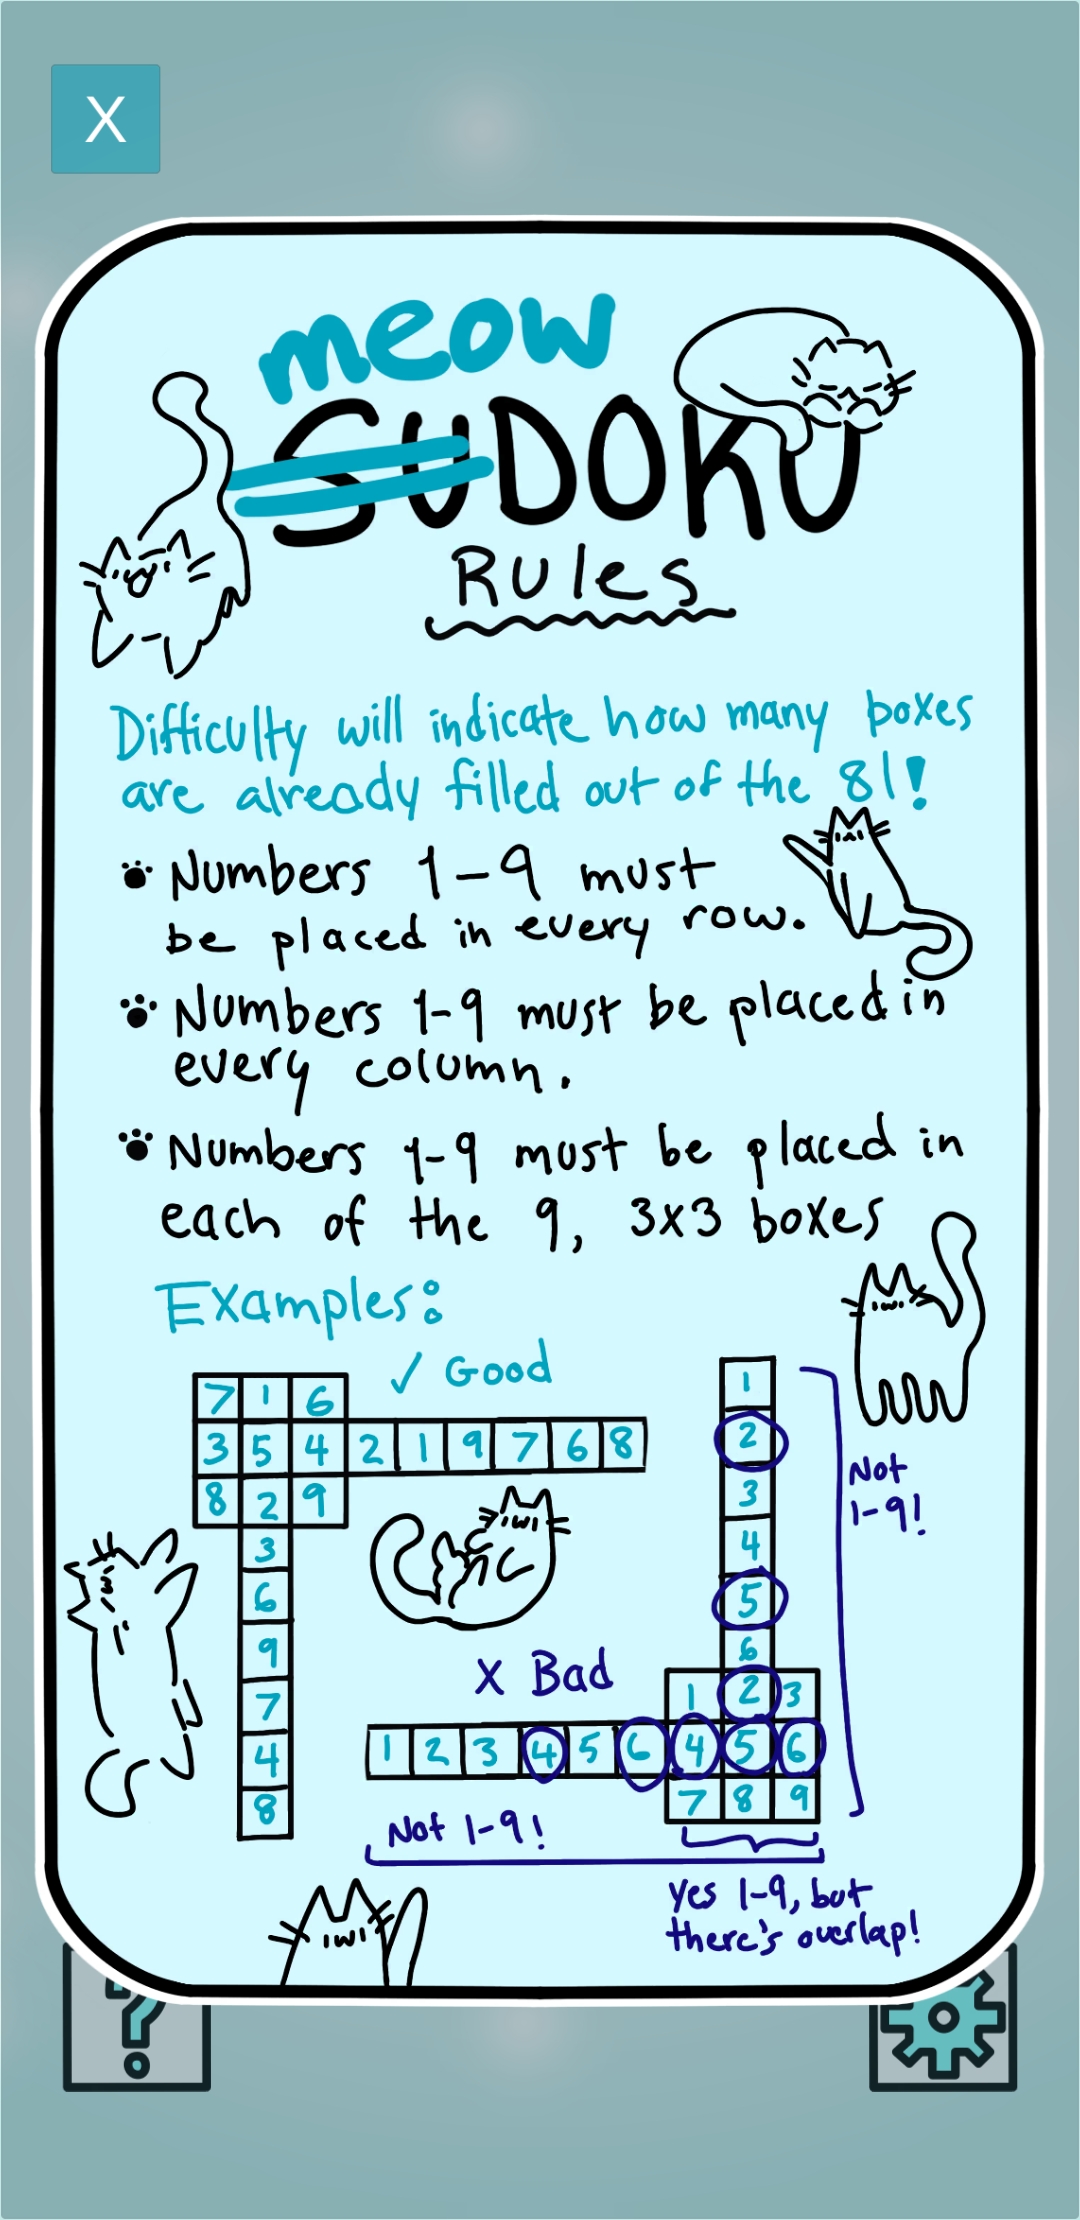 X
meow
SUDOKU
Rules
Difficulty will indicate how many boxes
are already filled out of the 81!
Numbers 1-9 must
be placed in every row.
Numbers 1-9 must be placed in
every column.
Numbers 1-9 must be placed in
each of the 9, 3x3 boxes
Examples:
✓ Good
7 1 6
3 5 4 2 1 9 7 6 8
8 2 9
3
6
9
7
4
8
1
2
3
4
5
6
Not
1-9!
X Bad
1 2 3
1 2 3 4 5 6 4 5 6
7 8 9
Not 1-9!
Yes 1-9, but
there's overlap!
?